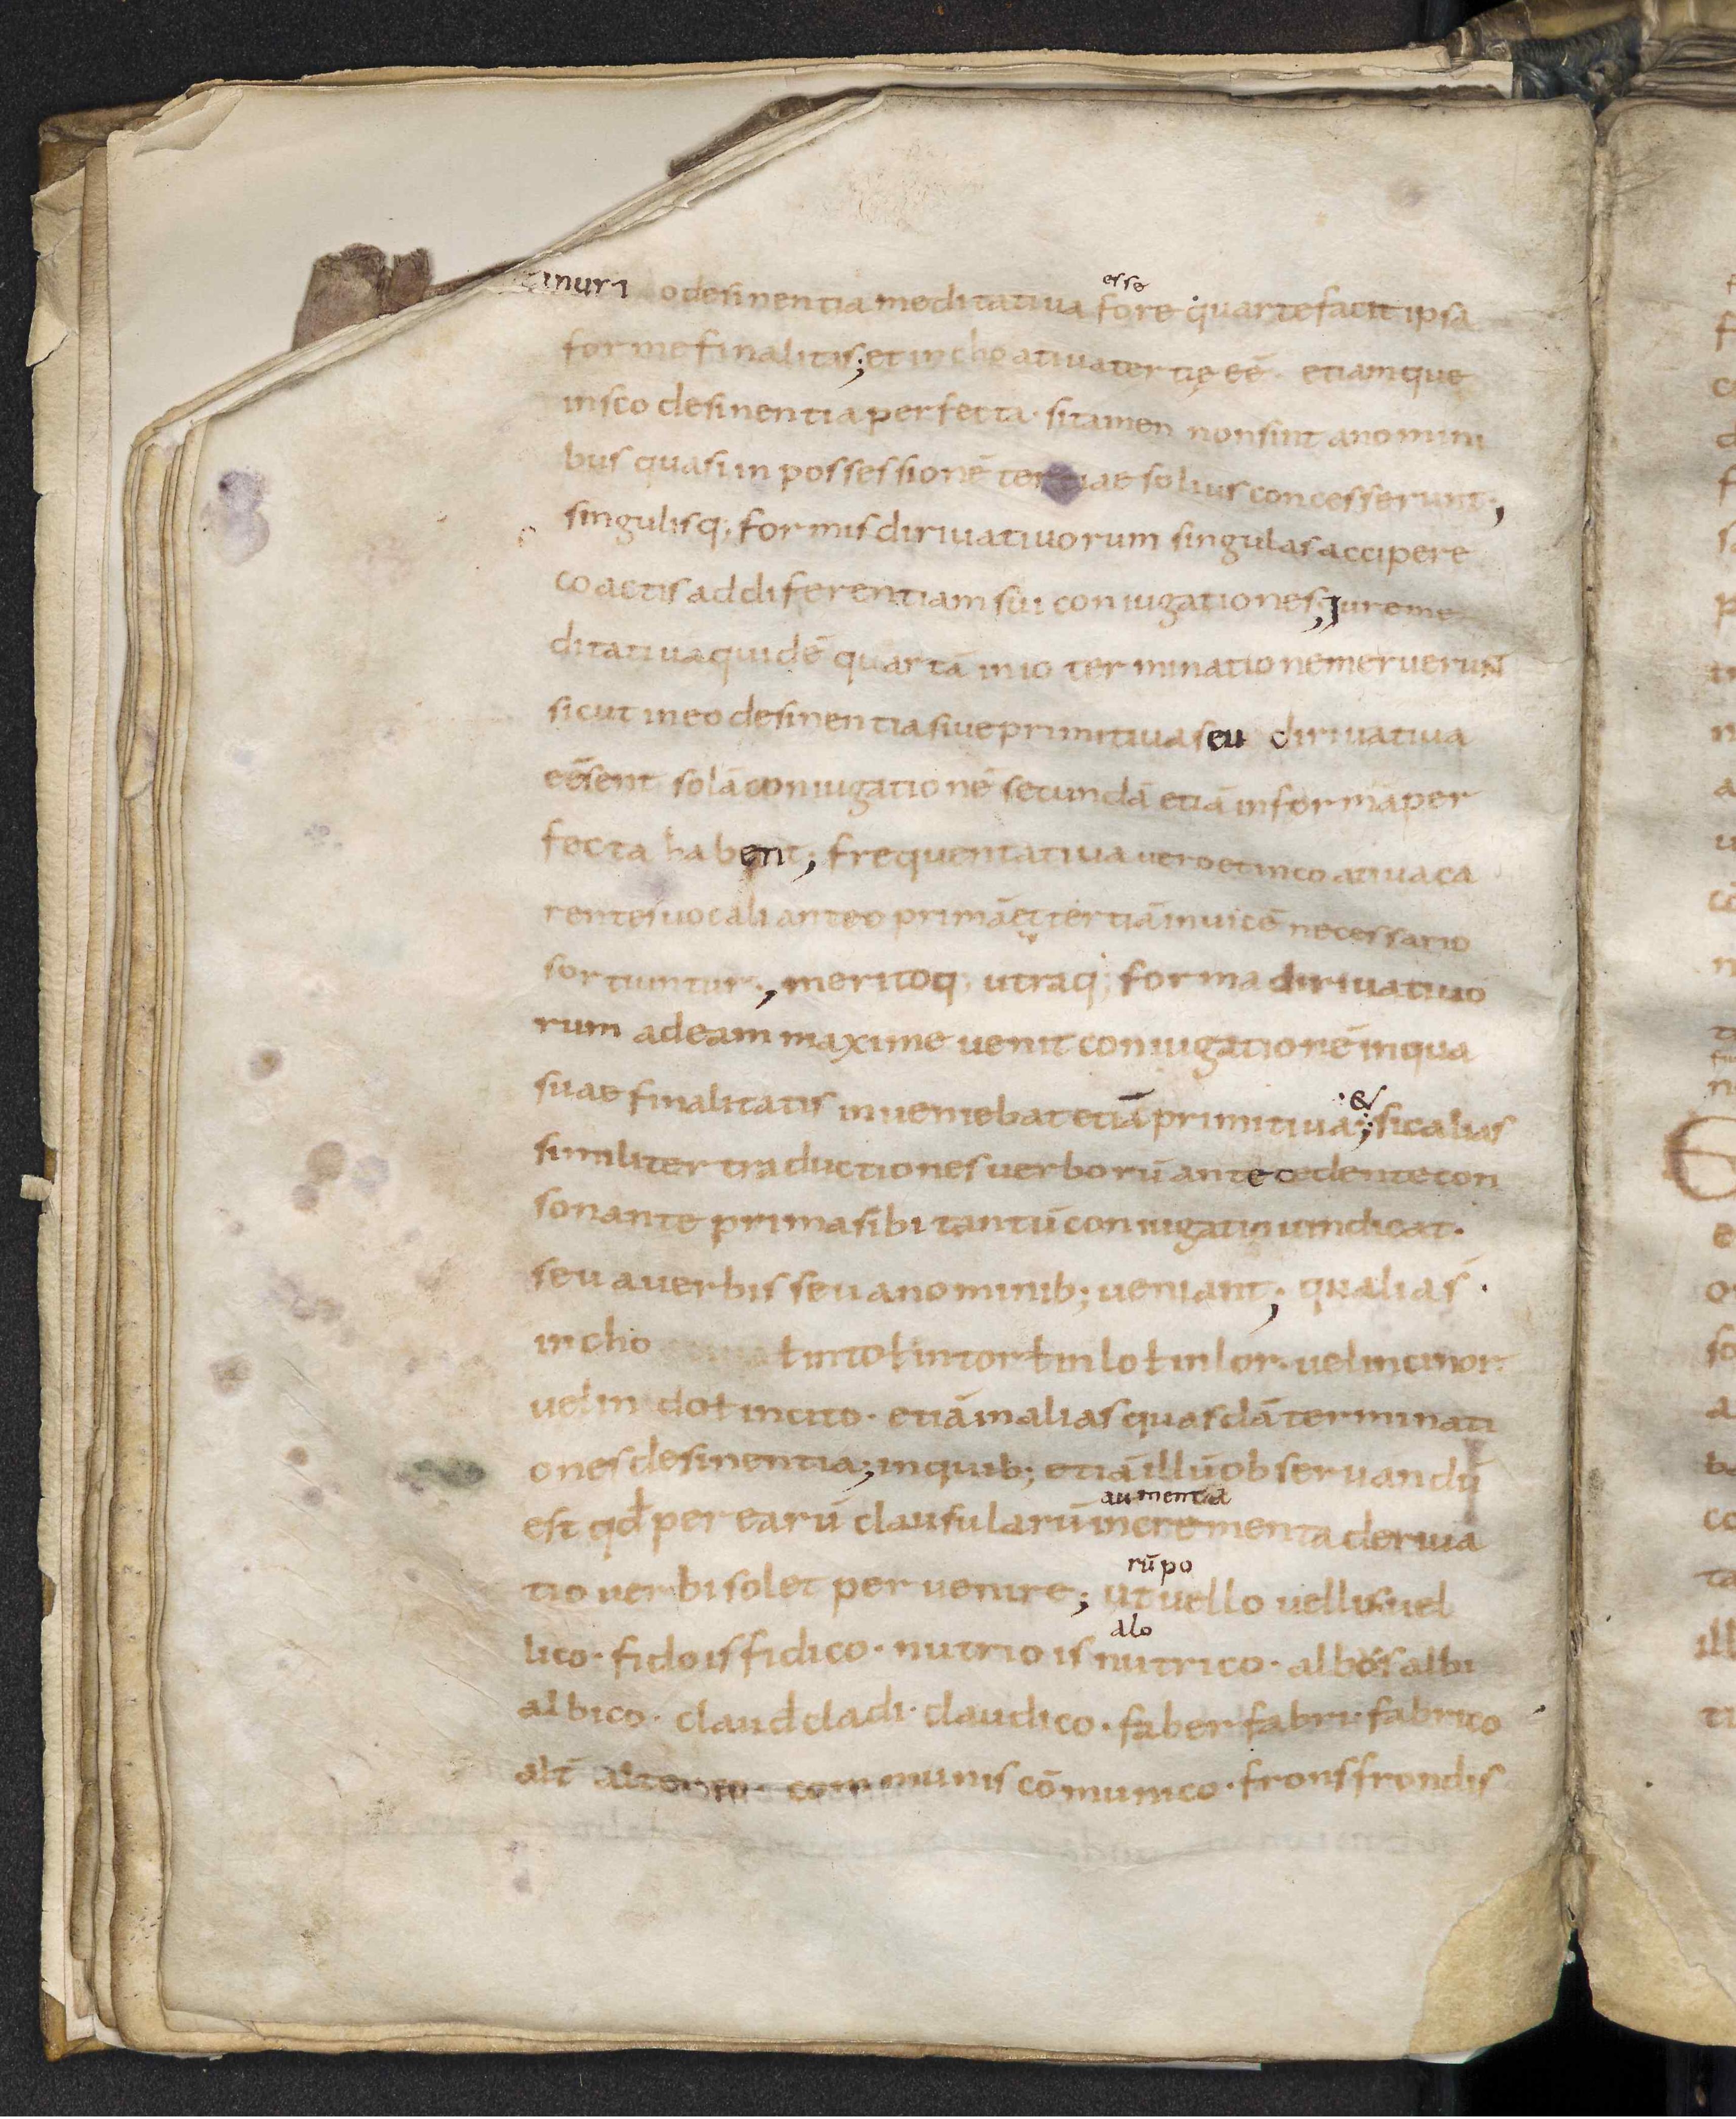 inuri odesinentia meditatiua fore quarte facit ipsa
esse
forme finalitas; et inchoatiua tertię eē. etiamque
insco desinentia perfecta. si tamen non sint anomini
bus quasi in possessionē tertiae solius concesserunt;
singulisq; formis diriuatiuorum singulas accipere
coactis addiferentiam sui coniugationes; Iure me
ditatiua quidē quartā in io terminatione meruerunt
sicut in eo desinentia siue primitiua seu diriuatiua
eēsent solā coniugationē secundā etiā in formā per
fecta habent; frequentatiua uero et incoatiua ca
rentes uocali ante o primā et tertiā inuicē necessario
sortiuntur; meritoq; utraq; forma diriuatiuo
rum adeam maxime uenit coniugationē in qua
suae finalitatis inueniebat etiā primitiua; sic alias
&
similiter traductiones uerborū antecedente con
sonante prima sibi tantū coniugatio uindicat.
seu auerbis seu anominib; ueniant; qualias.
incho ł in to ł in tor ł in lo ł in lor. uel in cinor
uel in do ł in cito. etiā in alias quasdā terminati
ones desinentia; in quib; etiā illū obseruandū
est qđ per earū clausularū incrementa deriua
aumenta
tio uerbi solet peruenire; ut uello uellis uel
rūpo
lico. fido is fidico. nutrio is nutrico. albos albi
alo
albico. claud cladi. claudico. faber fabri. fabrico
alt̄ communis cōmunico. frons frondis